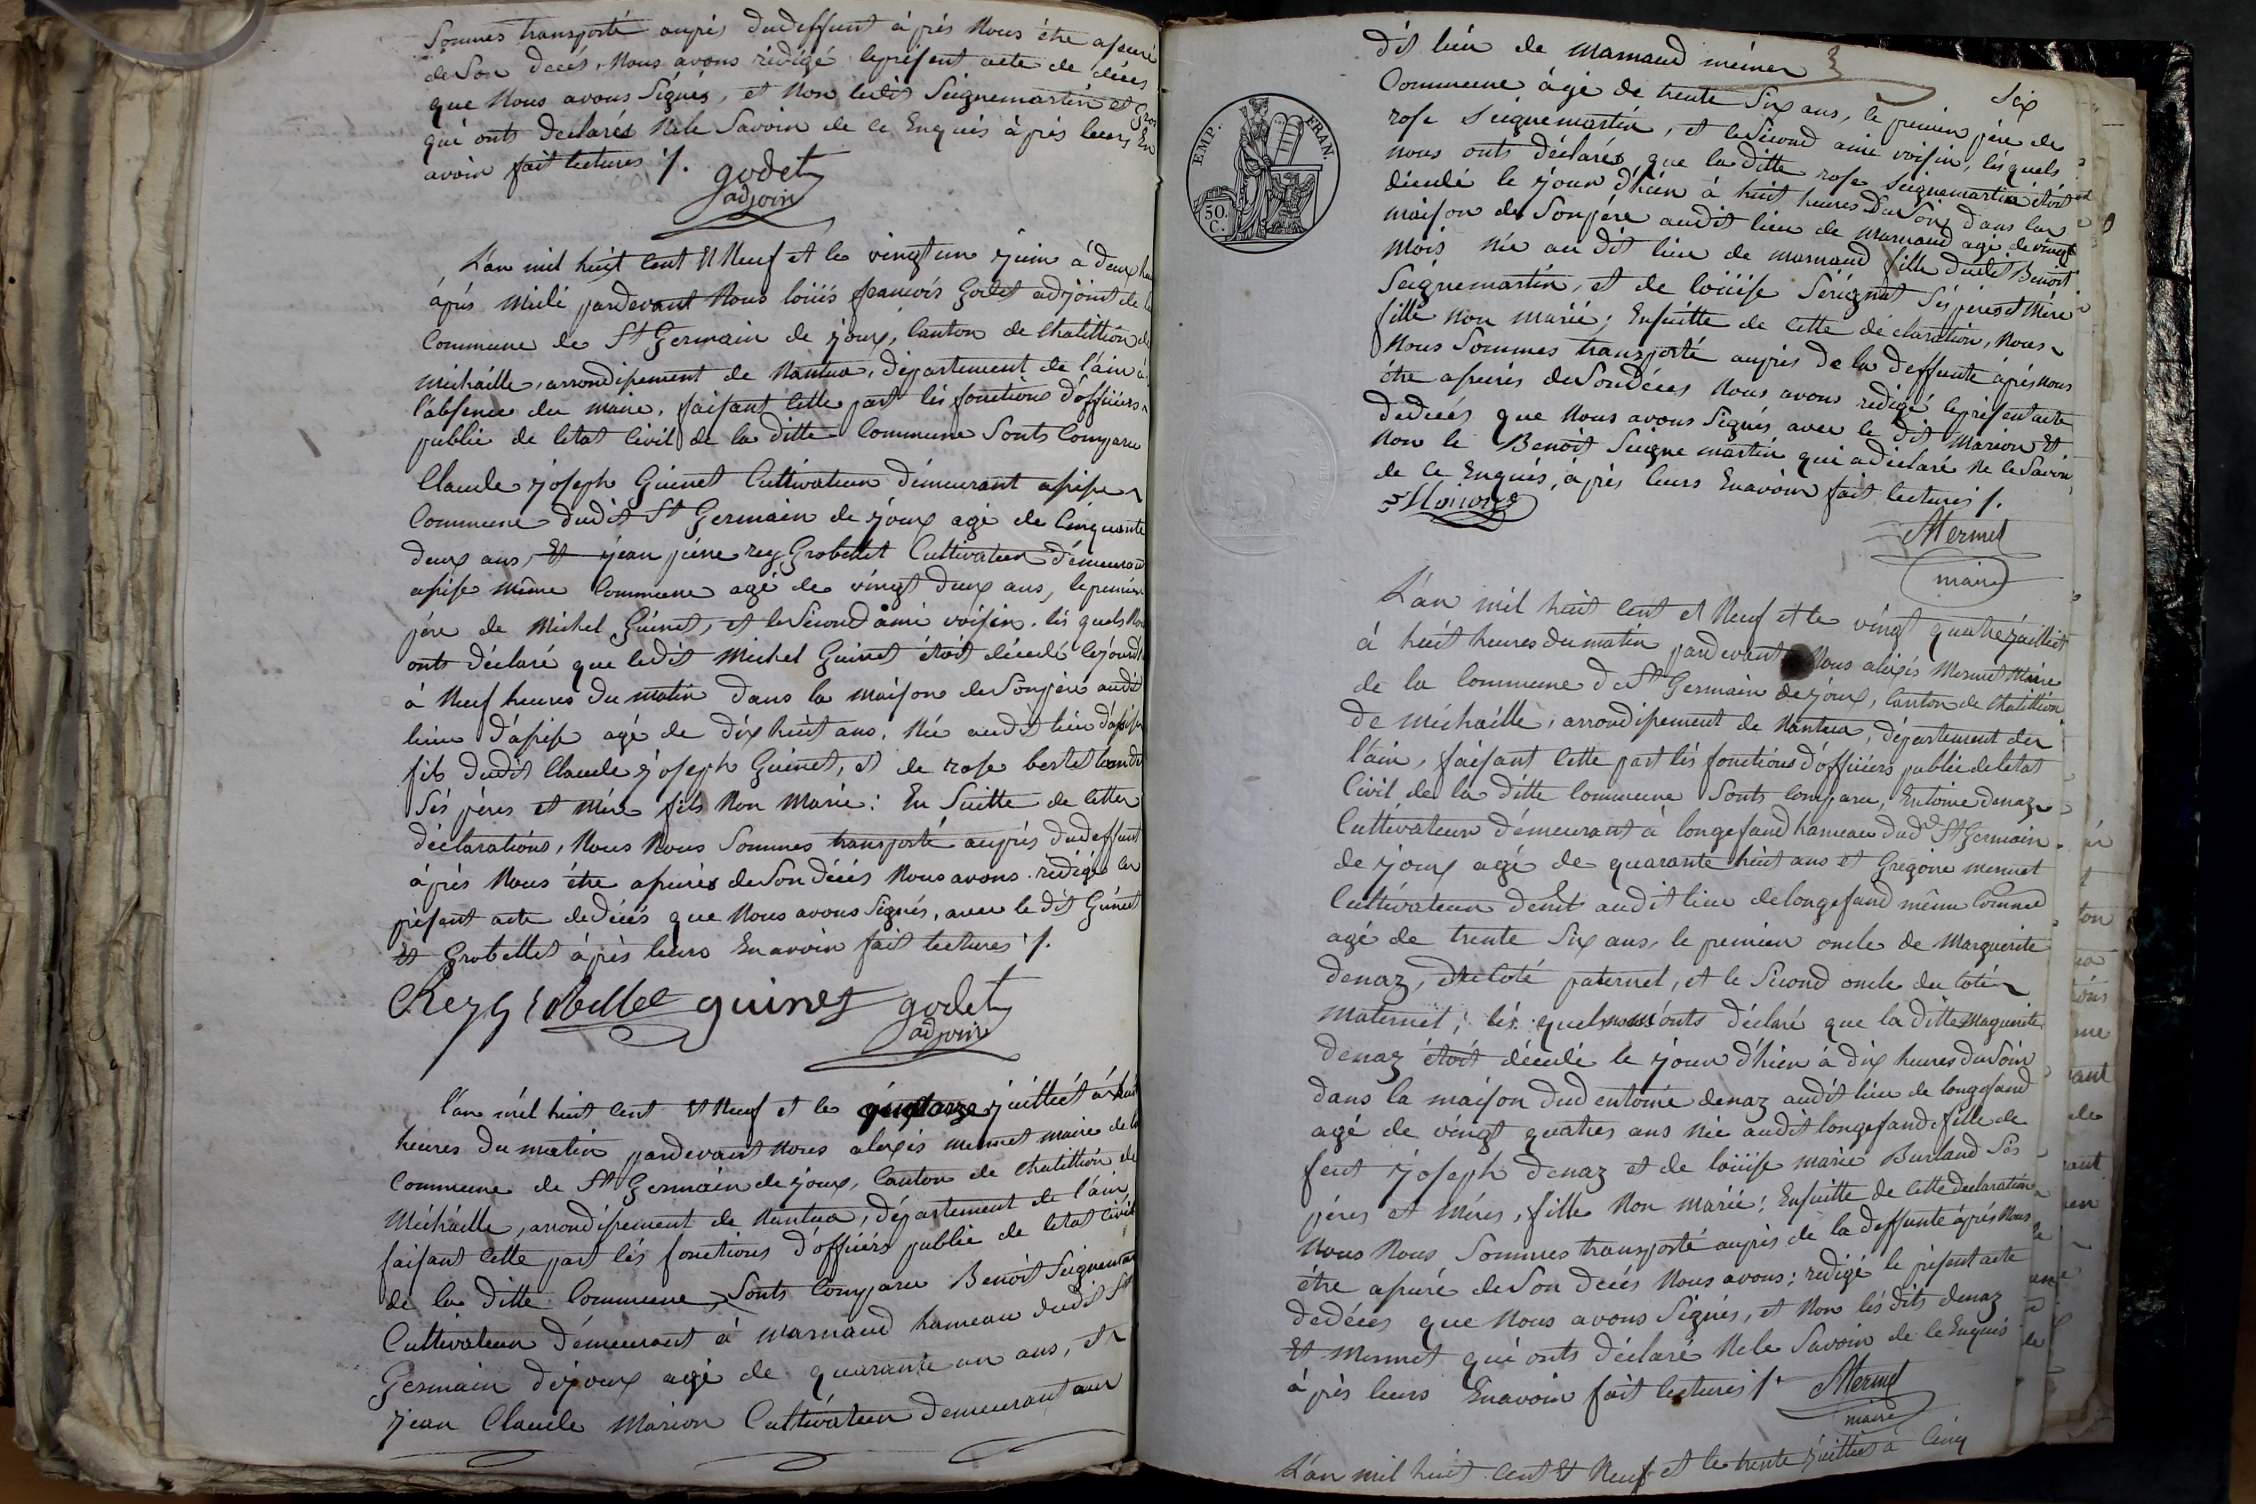 Sommes transporté auprés dudeffunt àprés Nous étre assuré
de Son decés, Nous avons rédigé leprésent acte de décés
que Nous avons Signés, et Non ledit Seignemartin et Gros
qui onts declarés Nele Savoir de ce Enquis àprés leurs En
avoir fait lectures ./.
godet
adjoin
L'an mil huit Cent et Neuf et le vingt un juin à deux
àprés Midi pardevant Nous loüis françois Godet adjoint de la
Commune de St Germain de joux, Canton de Chatillion de
Michaille, arrondissement de Nantua, département de l'ain à
l'absence du maire, faisant Cette part lés fonctions d'officiers
public de letat Civil de la ditte Commune Sonts Comparu
Claude joseph Guinet Cultivateur démeurant assise
Commune dudit St Germain de joux agé de Cinquante
deux ans, Et jean piere rey Grobellet Cultivateur démeurant
assise même Commune agé de vingt deux ans, le premier
pére de Michel Guinet, et le Second ami voisin, lés quels Nous
onts déclaré que ledit Michel Guinet étoit décedé le jourd
à Neuf heures du matin dans la maison de Sonpére audit
lieu d'assise agé de dix huit ans, Né audit lieu d'assise
fils dudit Claude joseph Guinet, et de rose bertet
Sés péres et Mére fils Non Marié: En Suitte de Cette
déclarations, Nous Nous Sommes transporté auprés dudeffunt
àprés Nous étre assurés de Son décés Nous avons rédigés le
présent acte de décés que Nous avons Signés, avec le dit Guinet
Et Grobellet àprés leurs En avoir fait lectures ./.
Reygrobellet guinet godet
adjoin
l'an mil huit Cent et Neuf et le quatorze juilliet à huit
heures du matin pardevant nous alexis mermet maire de la
Commune de St Germain de joux, Canton de Chatillion de
Michaille, arrondissement de Nantua, département de l'ain
faisant Cette part lés fonctions d'officiérs public de letat Civil
de la ditte Commune, Sonts Comparu Benoit Seignemartin
Cultivateur démeurant à marnaud hameau dudit St
Germain déjoux agé de quarante un ans, et
jean Claude Marion Cultivateur demeurant au
dit lieu de marnaud mémes
Six
Commune âgé de trente Six ans, le premier pére de
rose seignemartin, et le Second ami voisin, lesquels
nous onts déclarés que la ditte rose seignemartin étoit
décedé le jour d'hier à huit heures du Soir dans la
maison de Sonpére audit lieu de marnaud agé de vingt
mois Née au dit lieu de marnaud fille dudit Benoit
Seignemartin, et de loüise Sérignat Sés péres et Mére
fille Non Marié; Ensuitte de Cette déclaration, Nous
Nous Sommes transporté auprés de la deffunte àprés nous
étre assurés de Son Déces Nous avons rédigé leprésent acte
dedécés que Nous avons Signés avec le dit Marion Et
Non le Benoit Seigne martin qui a déclaré Ne le Savoir
de Ce Enquis, àprés leurs En avoir fait lectures ./.
EMP. FRAN.
50. C.
Mermet
maire
L'an mil huit Cent et Neuf et le vingt quatre juilliet
à huit heures du matin pardevant Nous aléxis Mermet Maire
de la Commune de St Germain de joux, Canton de Chatillion
de Michaille, arrondissement de Nantua, département de
l'ain, faisant Cette part lés fonctions d'officiérs public de letat
Civil de la ditte Commune Sonts Comparu, Entoine denaz
Cultivateur démeurant à longefand hameau dud St Germain
de joux agé de quarante huit ans et Grégoire mermet
Cultivateur demt audit lieu delongefand même Commune
agé de trente Six ans, le premier oncle de Marguerite
denaz, du Coté paternel, et le Second oncle du Coté
Maternel; lés quels nous onts déclaré que la ditte Maguerite
denaz étoit décedé le jour d'hier à dix heures du Soir
dans la maison dud entoine denaz audit lieu de longefand
agé de vingt quatres ans Née audit longefand fille de
feut joseph denaz et de loüise marie Burland Sés
péres et Méres, fille Non Marié; Ensuitte de Cette déclaration
Nous Nous Sommes transporté auprés de la deffunte àprés Nous
étre assuré de Son decés Nous avons: rédigé le présent acte
dedécés que Nous avons Signés, et Non lésdits denaz
Et Mermet qui onts déclaré Ne le Savoir de Ce Enquis
àprés leurs En avoir fait lectures ./.
Mermet
maire
L'an mil huit Cent et Neuf et le trente juilliet à Cinq